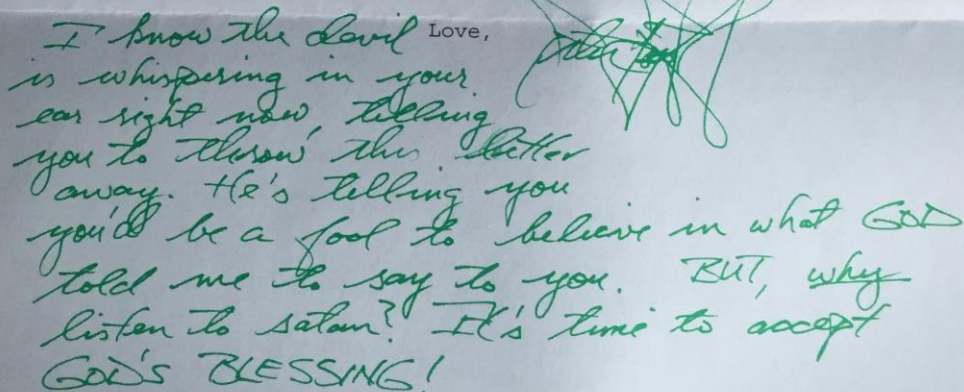 I know the devil Love,
is whispering in your
ear right now, telling
you to throw this letter
away. He's telling you
you'd be a fool to believe in what GOD
told me to say to you. BUT, why
listen to satan? It's time to accept
GOD'S BLESSING!